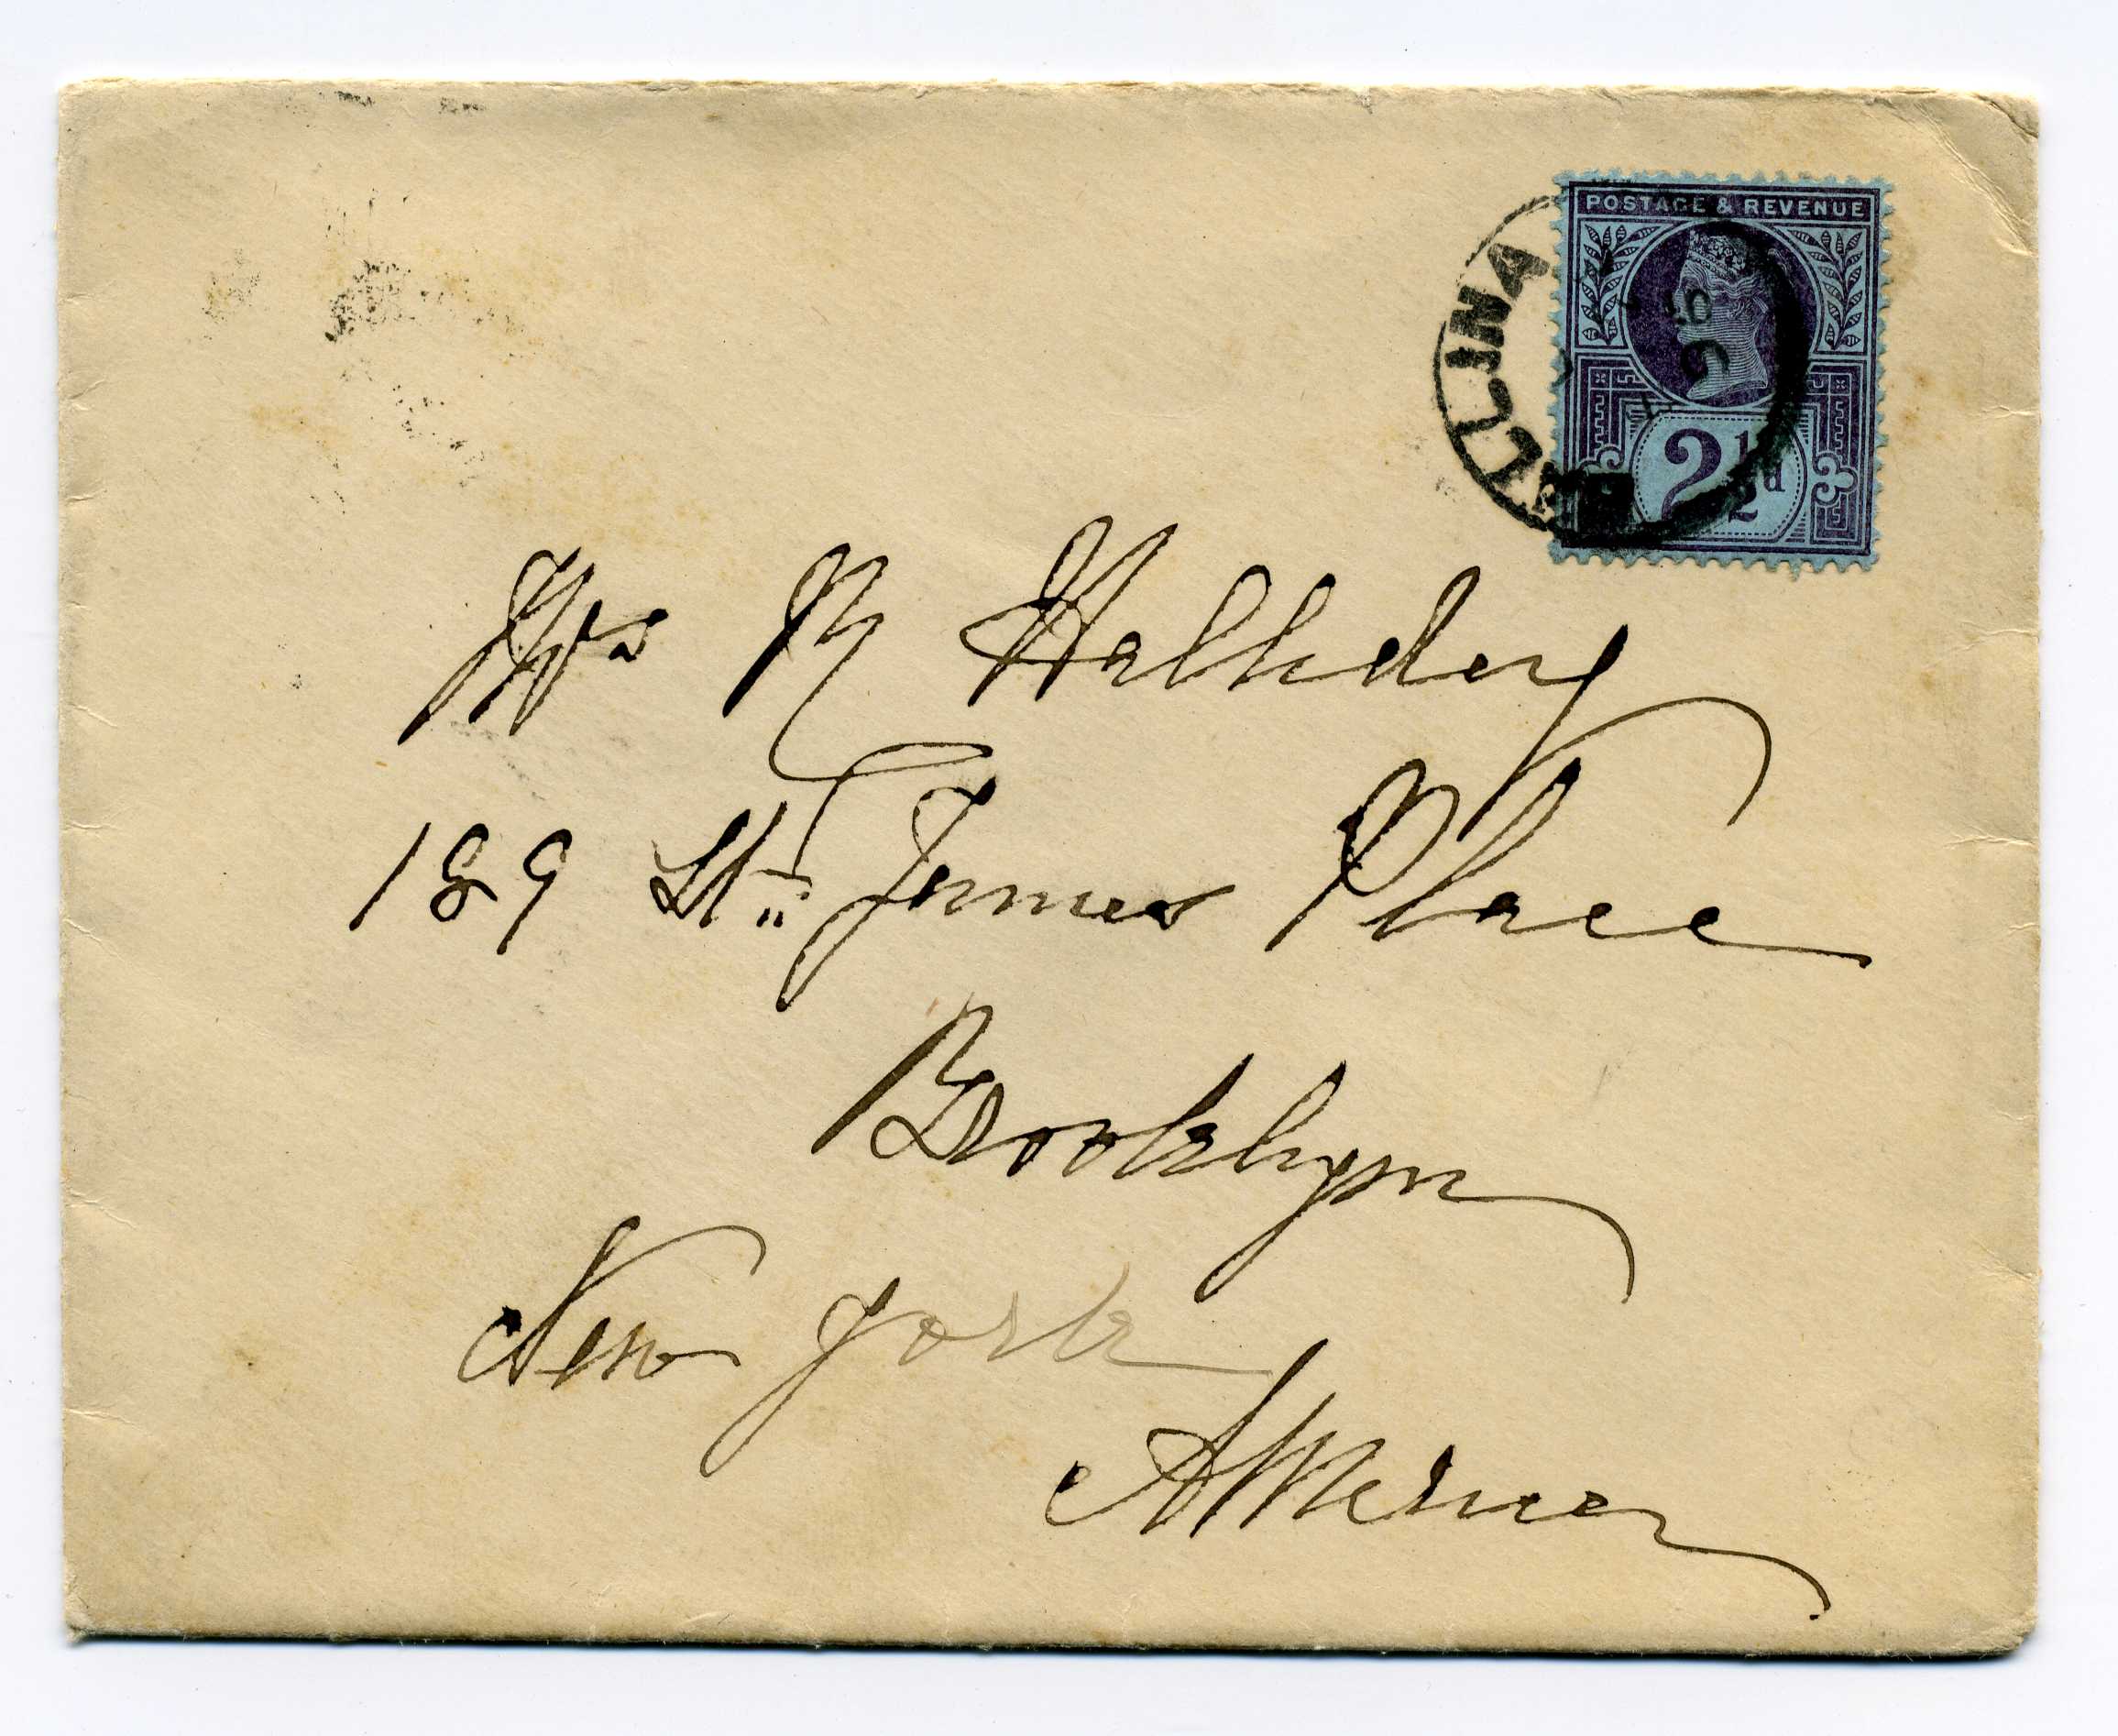 POSTAGE & REVENUE
2½d
BALLINA
Mrs M Halliday
189 St James Place
Brooklyn
New York
America